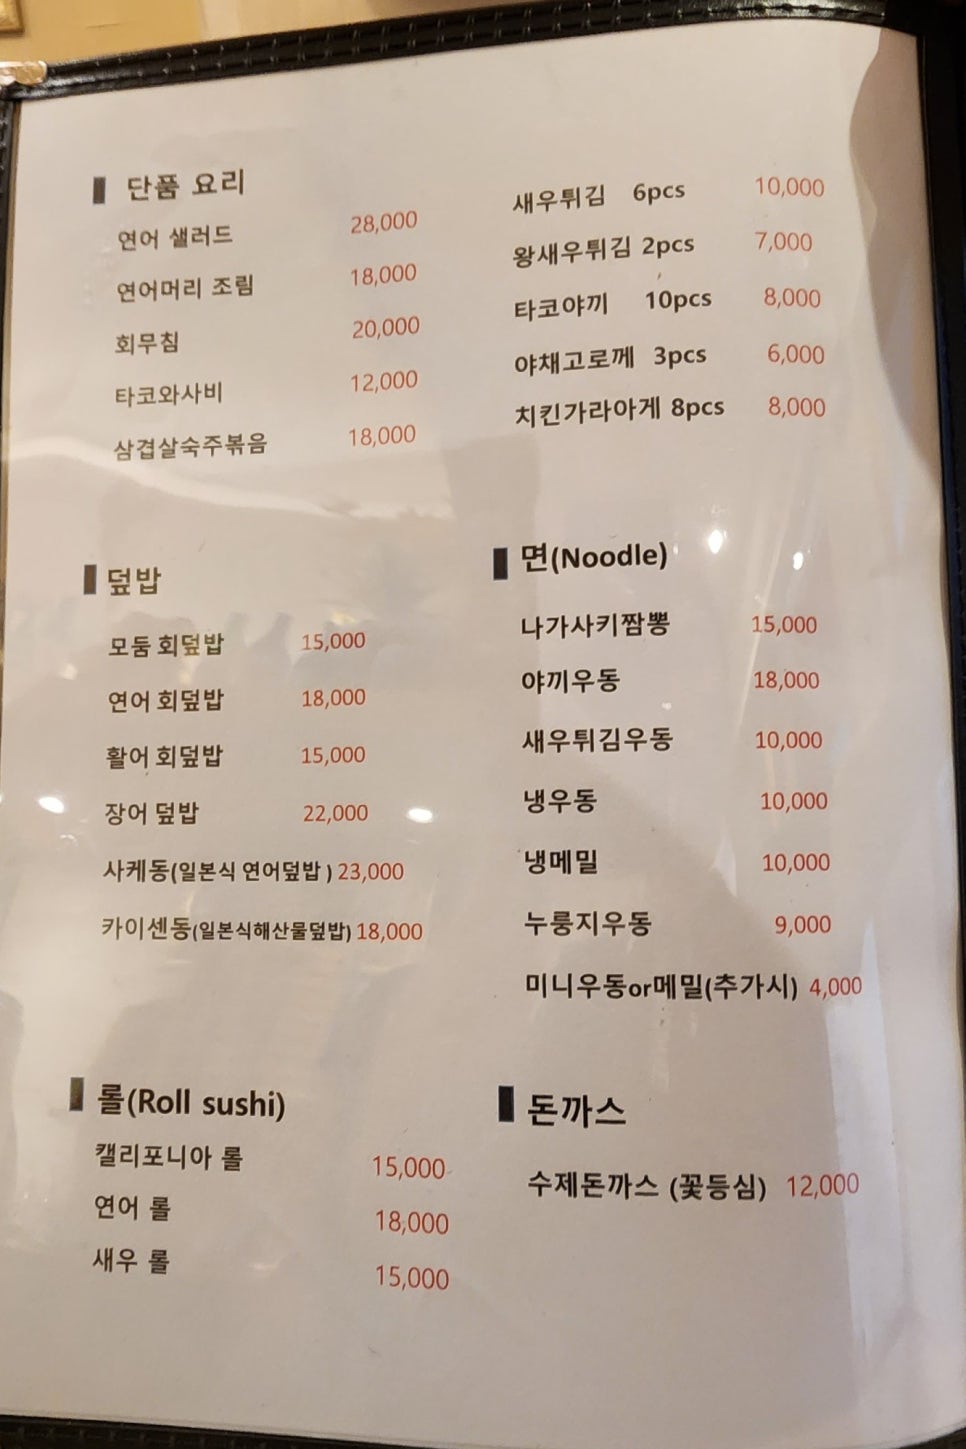 단품 요리
연어 샐러드 28,000
연어머리 조림 18,000
회무침 20,000
타코와사비 12,000
삼겹살숙주볶음 18,000
새우튀김 6pcs 10,000
왕새우튀김 2pcs 7,000
타코야끼 10pcs 8,000
야채고로께 3pcs 6,000
치킨가라아게 8pcs 8,000
덮밥
모둠 회덮밥 15,000
연어 회덮밥 18,000
활어 회덮밥 15,000
장어 덮밥 22,000
사케동(일본식 연어덮밥 ) 23,000
카이센동(일본식해산물덮밥) 18,000
면(Noodle)
나가사키짬뽕 15,000
야끼우동 18,000
새우튀김우동 10,000
냉우동 10,000
냉메밀 10,000
누룽지우동 9,000
미니우동or메밀(추가시) 4,000
롤(Roll sushi)
캘리포니아 롤 15,000
연어 롤 18,000
새우 롤 15,000
돈까스
수제돈까스 (꽃등심) 12,000